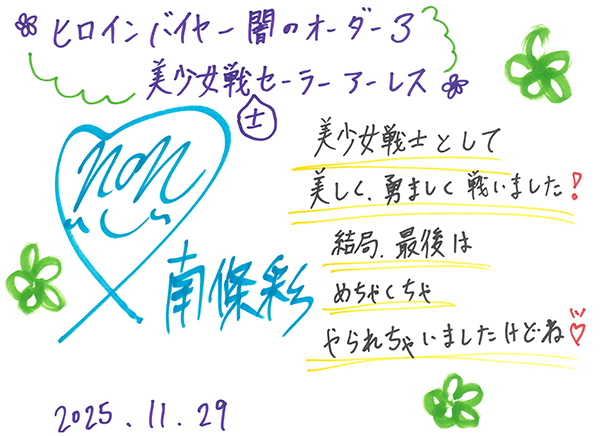 ヒロインバイヤー闇のオーダー3
美少女戦セーラーアーレス
士
non
南條彩
美少女戦士として
美しく、勇ましく戦いました!
結局、最後は
めちゃくちゃ
やられちゃいましたけどね♡
2025.11.29